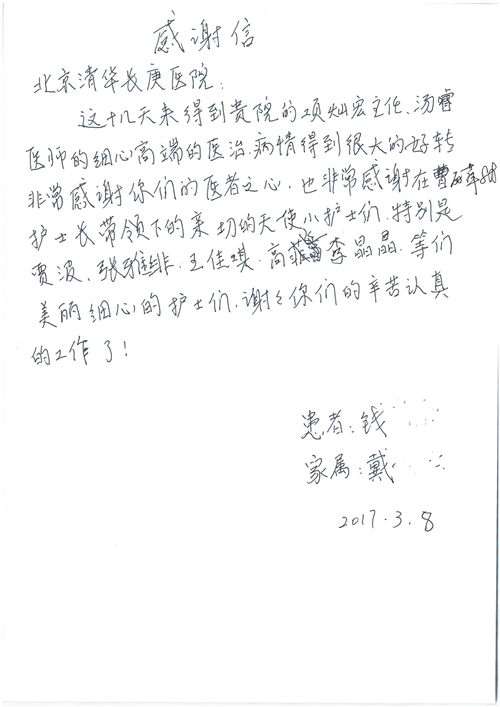 感谢信
北京清华长庚医院：
这十几天来得到贵院的项灿宏主任、汤睿
医师的细心高端的医治，病情得到很大的好转
非常感谢你们的医者之心，也非常感谢在曹
护士长带领下的亲切的天使小护士们，特别是
贾波、张雅维、王佳琪、高菲、李晶晶、等们
美丽细心的护士们，谢々你们的辛苦认真
的工作了！
患者：钱
家属：戴
2017.3.8